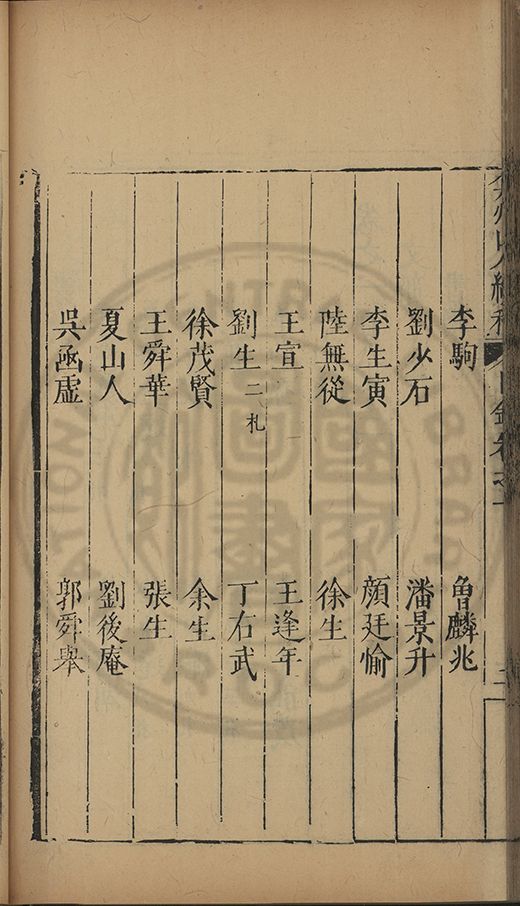 李駒 魯麟兆
劉少石 潘景升
李生寅 顔廷愉
陸無從 徐生
王宣 王逢年
劉生二札 丁右武
徐茂賢 余生
王舜華 張生
夏山人 劉後庵
吳函虛 郭舜舉